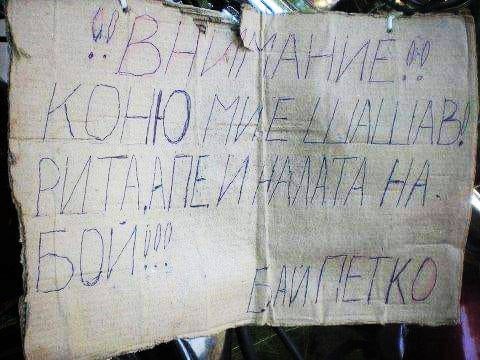 !!ВНИМАНИЕ!!
КОНЮ МИ Е ШАШАВ!
РИТА,АПЕ И НАЛАТА НА
БОЙ!!!
БАЙ ПЕТКО